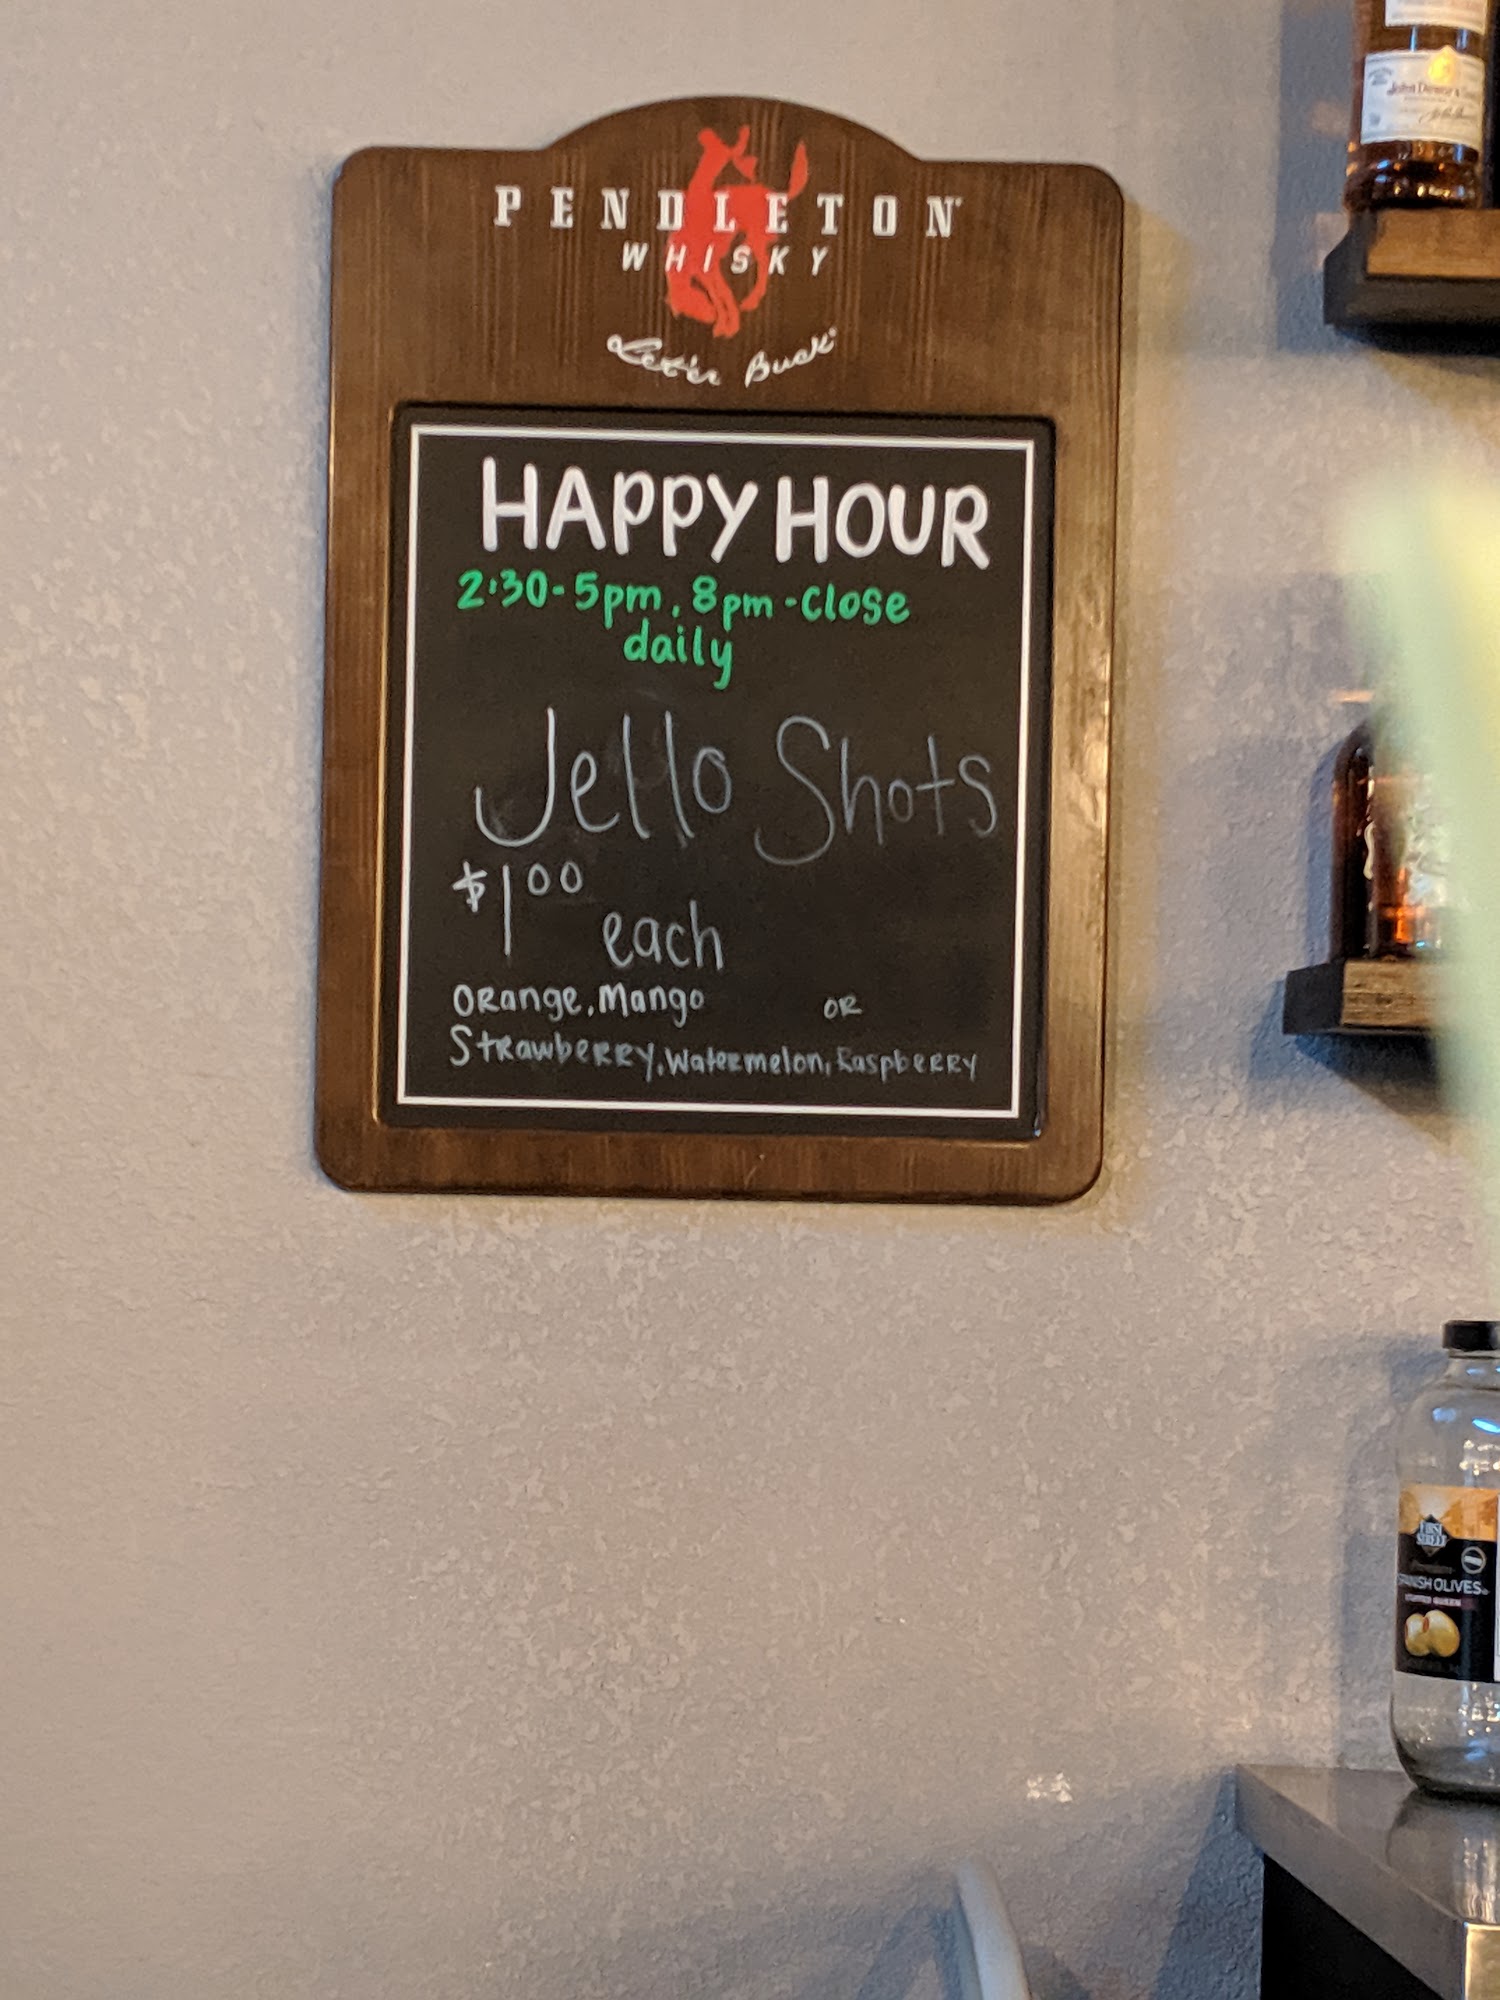 PENDLETON
WHISKY
Let'er Buck
HAPPY HOUR
2:30-5pm, 8pm-Close
daily
Jello Shots
$1.00
each
Orange, Mango OR
Strawberry, Watermelon, Raspberry
FIRST
STREET
SPANISH OLIVES